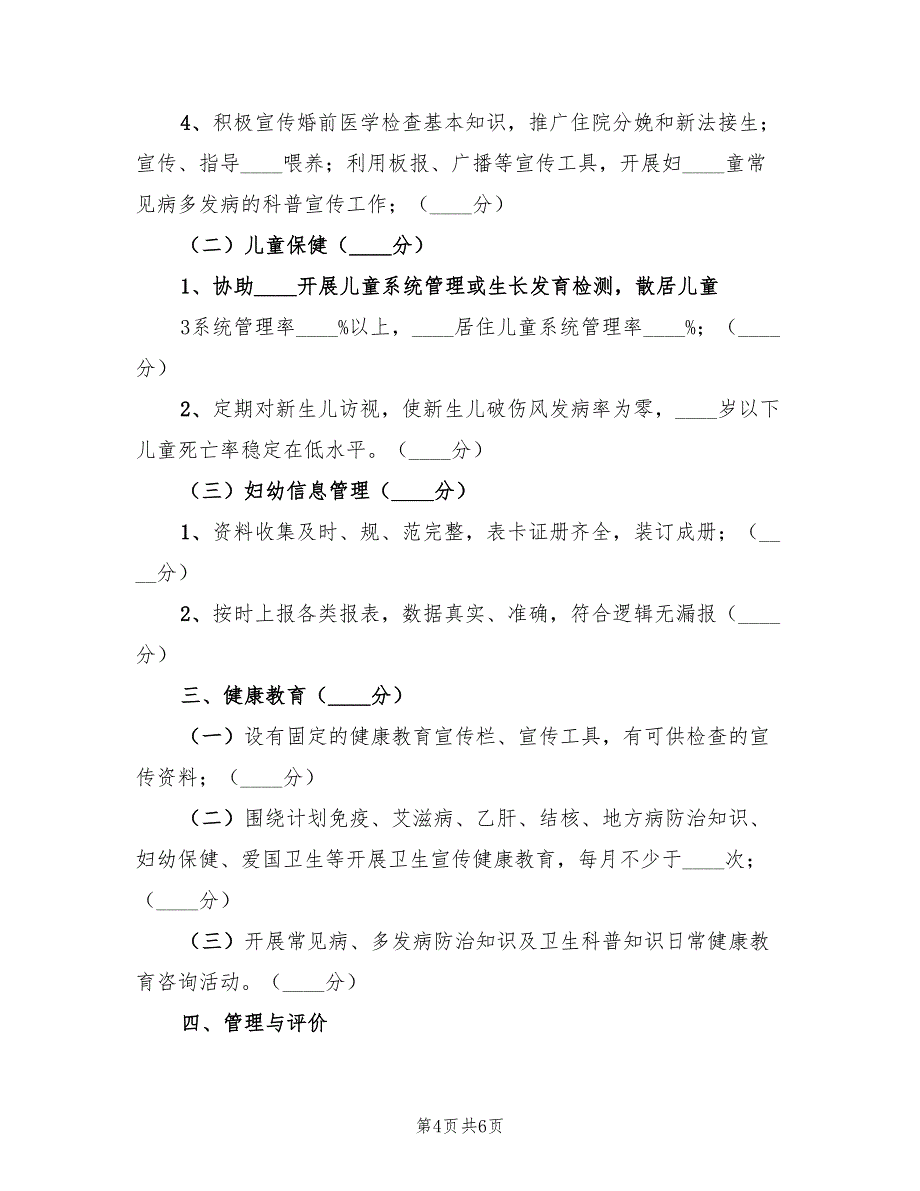 4、积极宣传婚前医学检查基本知识，推广住院分娩和新法接生；
宣传、指导____喂养；利用板报、广播等宣传工具，开展妇____童常
见病多发病的科普宣传工作；（____分）
（二）儿童保健（____分）
1、协助____开展儿童系统管理或生长发育检测，散居儿童
3系统管理率____%以上，____居住儿童系统管理率____%；（____
分）
2、定期对新生儿访视，使新生儿破伤风发病率为零，____岁以下
儿童死亡率稳定在低水平。（____分）
（三）妇幼信息管理（____分）
1、资料收集及时、规、范完整，表卡证册齐全，装订成册；（__
__分）
2、按时上报各类报表，数据真实、准确，符合逻辑无漏报（____
分）
三、健康教育（____分）
（一）设有固定的健康教育宣传栏、宣传工具，有可供检查的宣
传资料；（____分）
（二）围绕计划免疫、艾滋病、乙肝、结核、地方病防治知识、
妇幼保健、爱国卫生等开展卫生宣传健康教育，每月不少于____次；
（____分）
（三）开展常见病、多发病防治知识及卫生科普知识日常健康教
育咨询活动。（____分）
四、管理与评价
第4页共6页